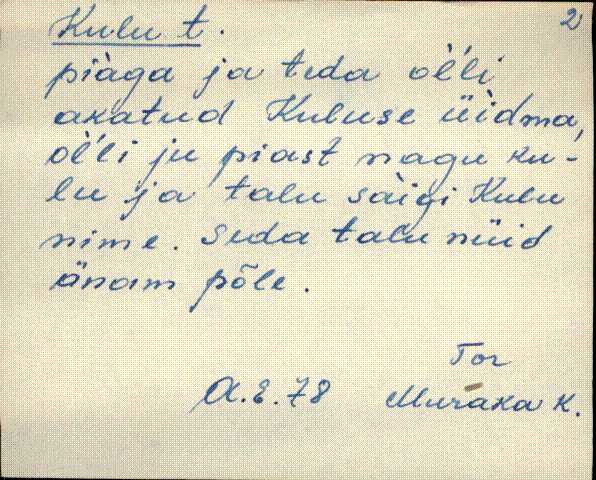 Kulu t.
2
piàga ja teda òl'li
akatud Kuluse üìdma,
òl'li ju piast nagu ku-
lu ja talu sàigi Kulu
nime. Seda talu nüid
änam põle.
Tor
A.E.78 Muraka K.